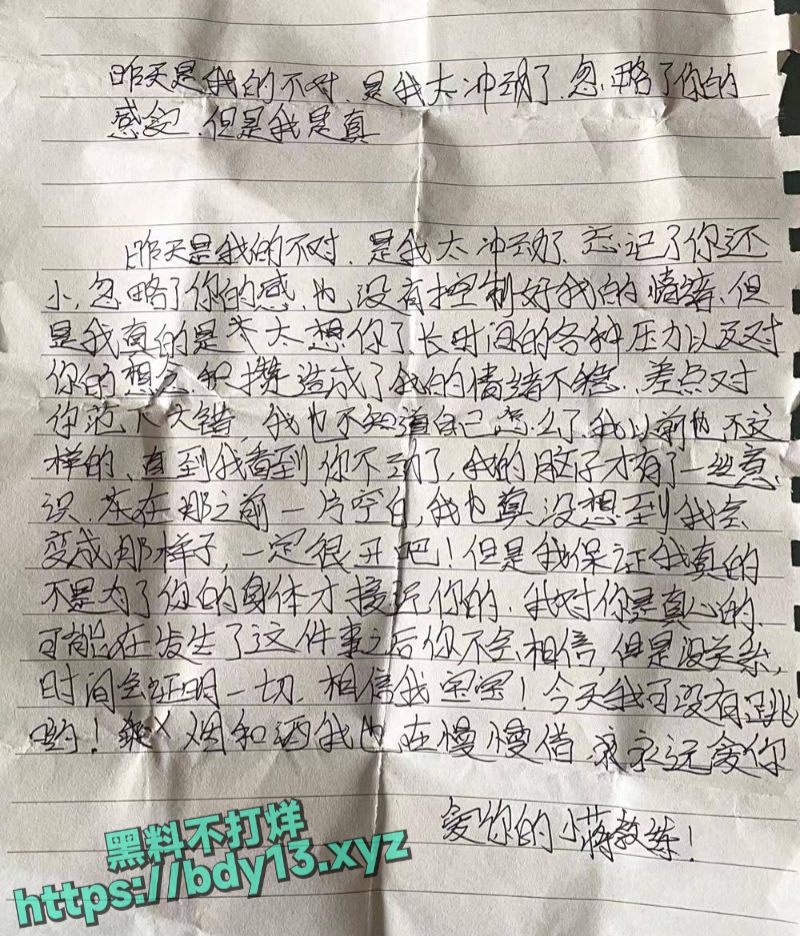 昨天是我的不对、是我太冲动了、忽略了你的
感受、但是我是真
昨天是我的不对、是我太冲动了、忘记了你还
小、忽略了你的感、也没有控制好我的情绪、但
是我真的是太想你了长时间的各种压力以及对
你的想念积攒造成了我的情绪不稳、差点对
你犯下大错，我也不知道自己怎么了、我以前也不这
样的、直到我看到你不动了，我的脑子才有了一丝意
识、在那之前一片空白，我也真没想到我会
变成那样子，一定很丑吧！但是我保证我真的
不是为了你的身体才接近你的、我对你是真心的、
可能在发生了这件事之后你不会相信，但是没关系，
时间会证明一切、相信我宝宝！今天我可没有跳
哟！烟和酒我也在慢慢借、永永远爱你
爱你的小蒋教练！
黑料不打烊
https://bdy13.xyz